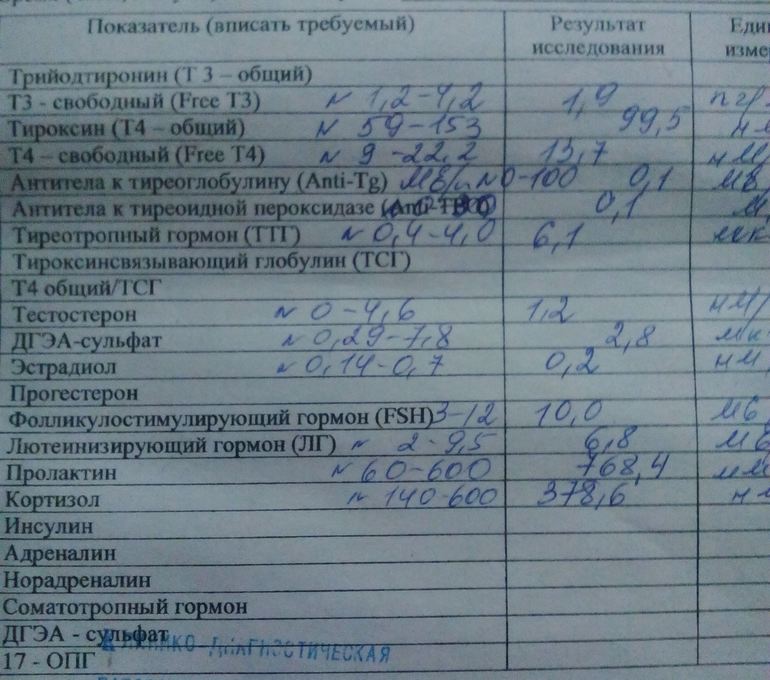 Показатель (вписать требуемый) Результат исследования Един измер
Трийодтиронин (Т 3 – общий)
Т3 - свободный (Free T3) N 1,2-4,2 1,9 пг/
Тироксин (Т4 – общий) N 59-153 99,5 нм
Т4 – свободный (Free T4) N 9-22,2 13,7 нм/
Антитела к тиреоглобулину (Anti-Tg) МЕ/ N 0-100 0,1 МЕ/
Антитела к тиреоидной пероксидазе (Anti-TPO) 0,1 М
Тиреотропный гормон (ТТГ) N 0,4-4,0 6,1 мк
Тироксинсвязывающий глобулин (ТСГ)
Т4 общий/ТСГ
Тестостерон N 0-4,6 1,2 нм/
ДГЭА-сульфат N 0,29-7,8 2,8 мк
Эстрадиол N 0,14-0,7 0,2 нм
Прогестерон
Фолликулостимулирующий гормон (FSH) 3-12 10,0 МЕ
Лютеинизирующий гормон (ЛГ) N 2-9,5 6,8 МЕ
Пролактин N 60-600 768,4 мМ
Кортизол N 140-600 378,6 нм
Инсулин
Адреналин
Норадреналин
Соматотропный гормон
ДГЭА - сульфат
КЛИНИКО-ДИАГНОСТИЧЕСКАЯ
17 - ОПГ